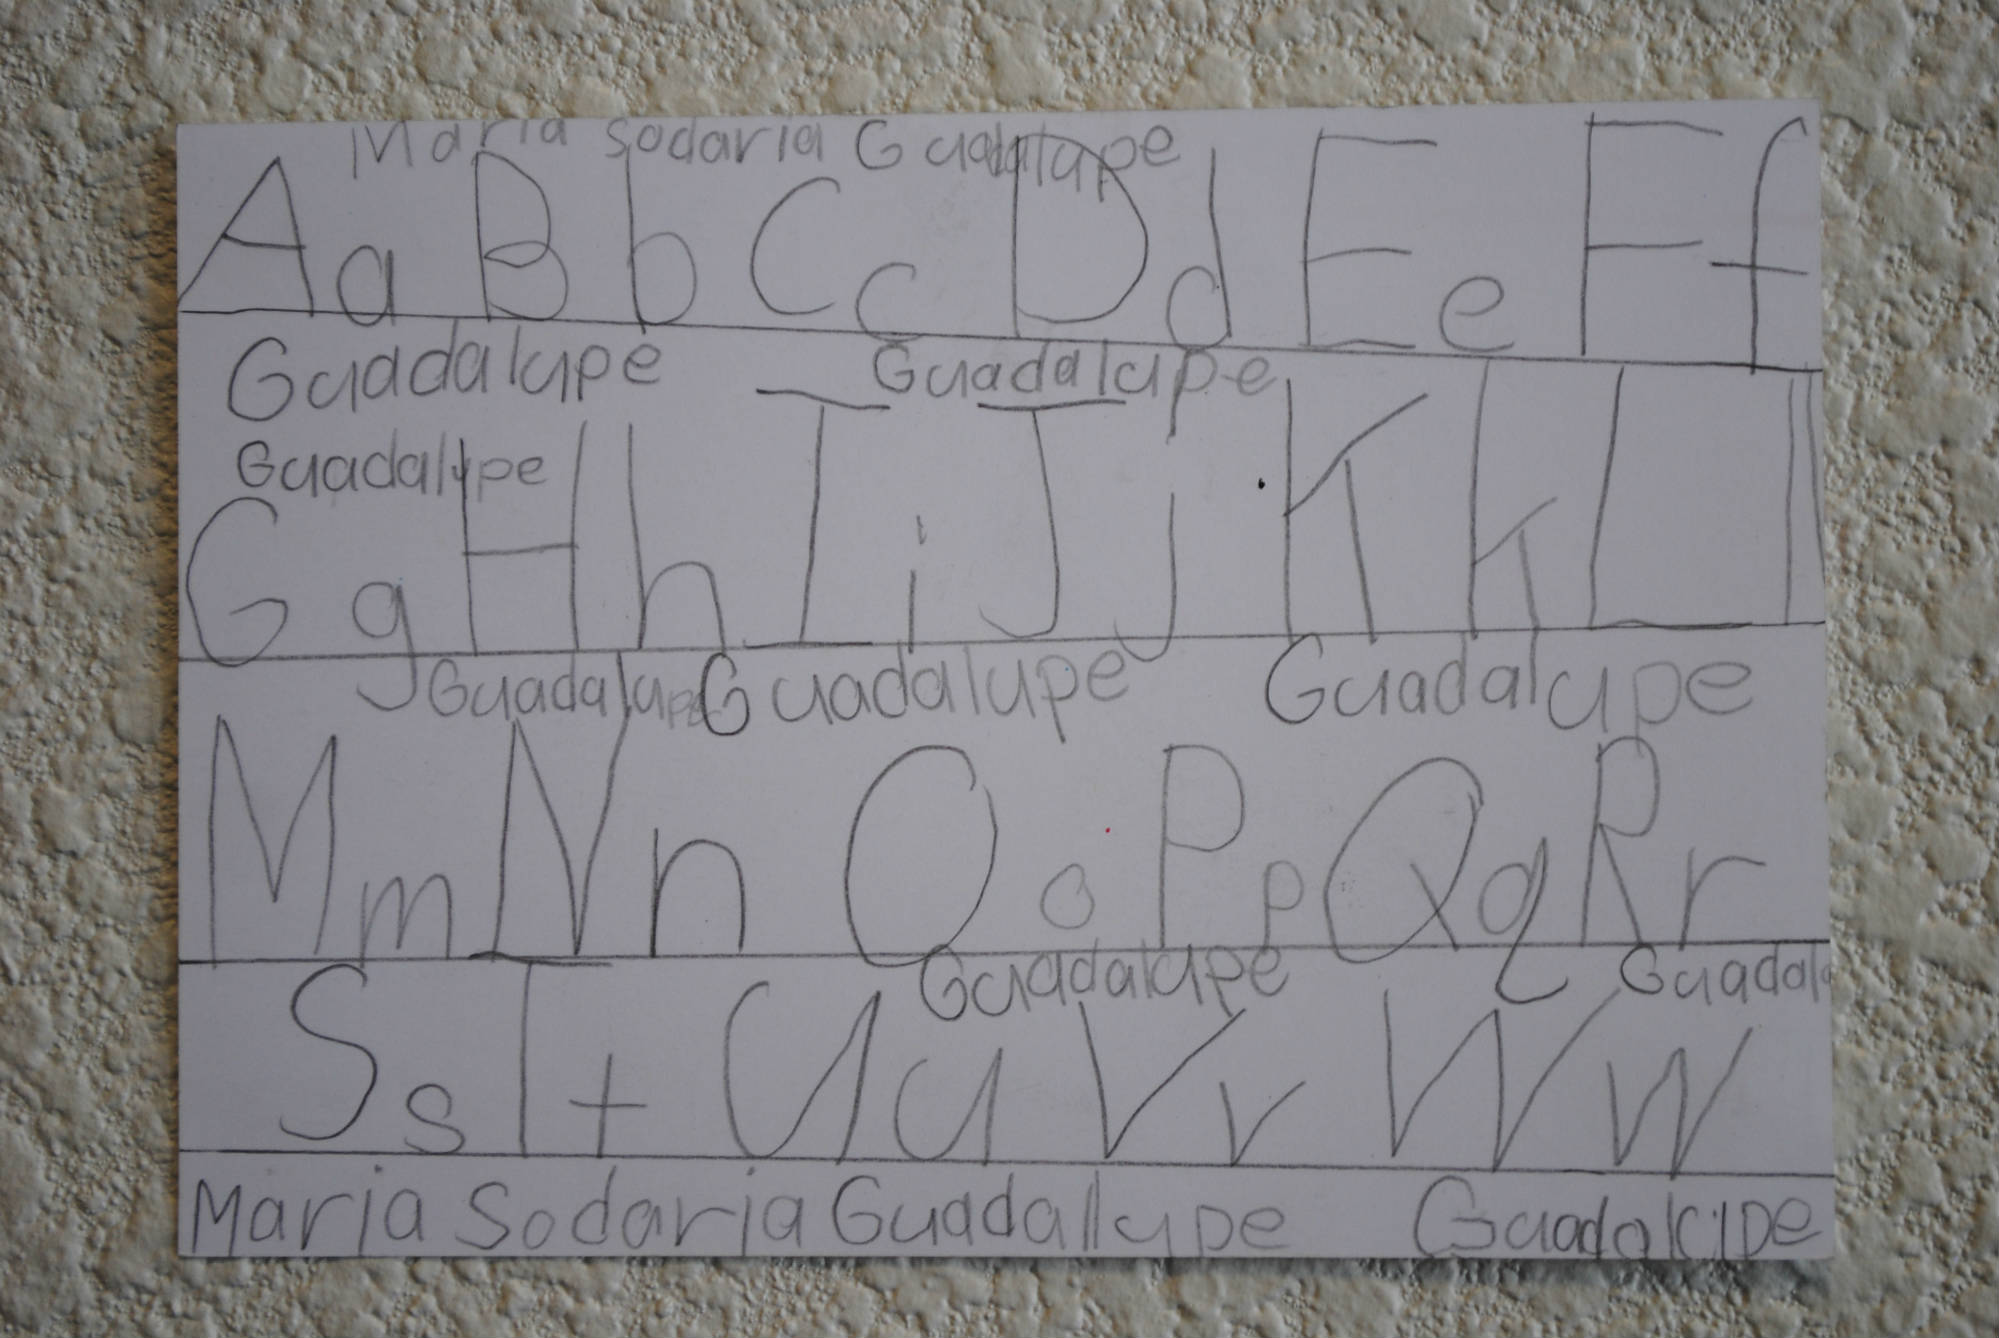 Maria Sodaria Guadalupe
Aa Bb Cc Dd Ee Ff
Guadalupe Guadalupe
Guadalupe
Gg Hh Ii Jj Kk Ll
Guadalupe Guadalupe Guadalupe
Mm Nn Oo Pp Qq Rr
Guadalupe Guadalu
Ss Tt Uu Vv Ww
Maria Sodaria Guadallupe Guadalupe